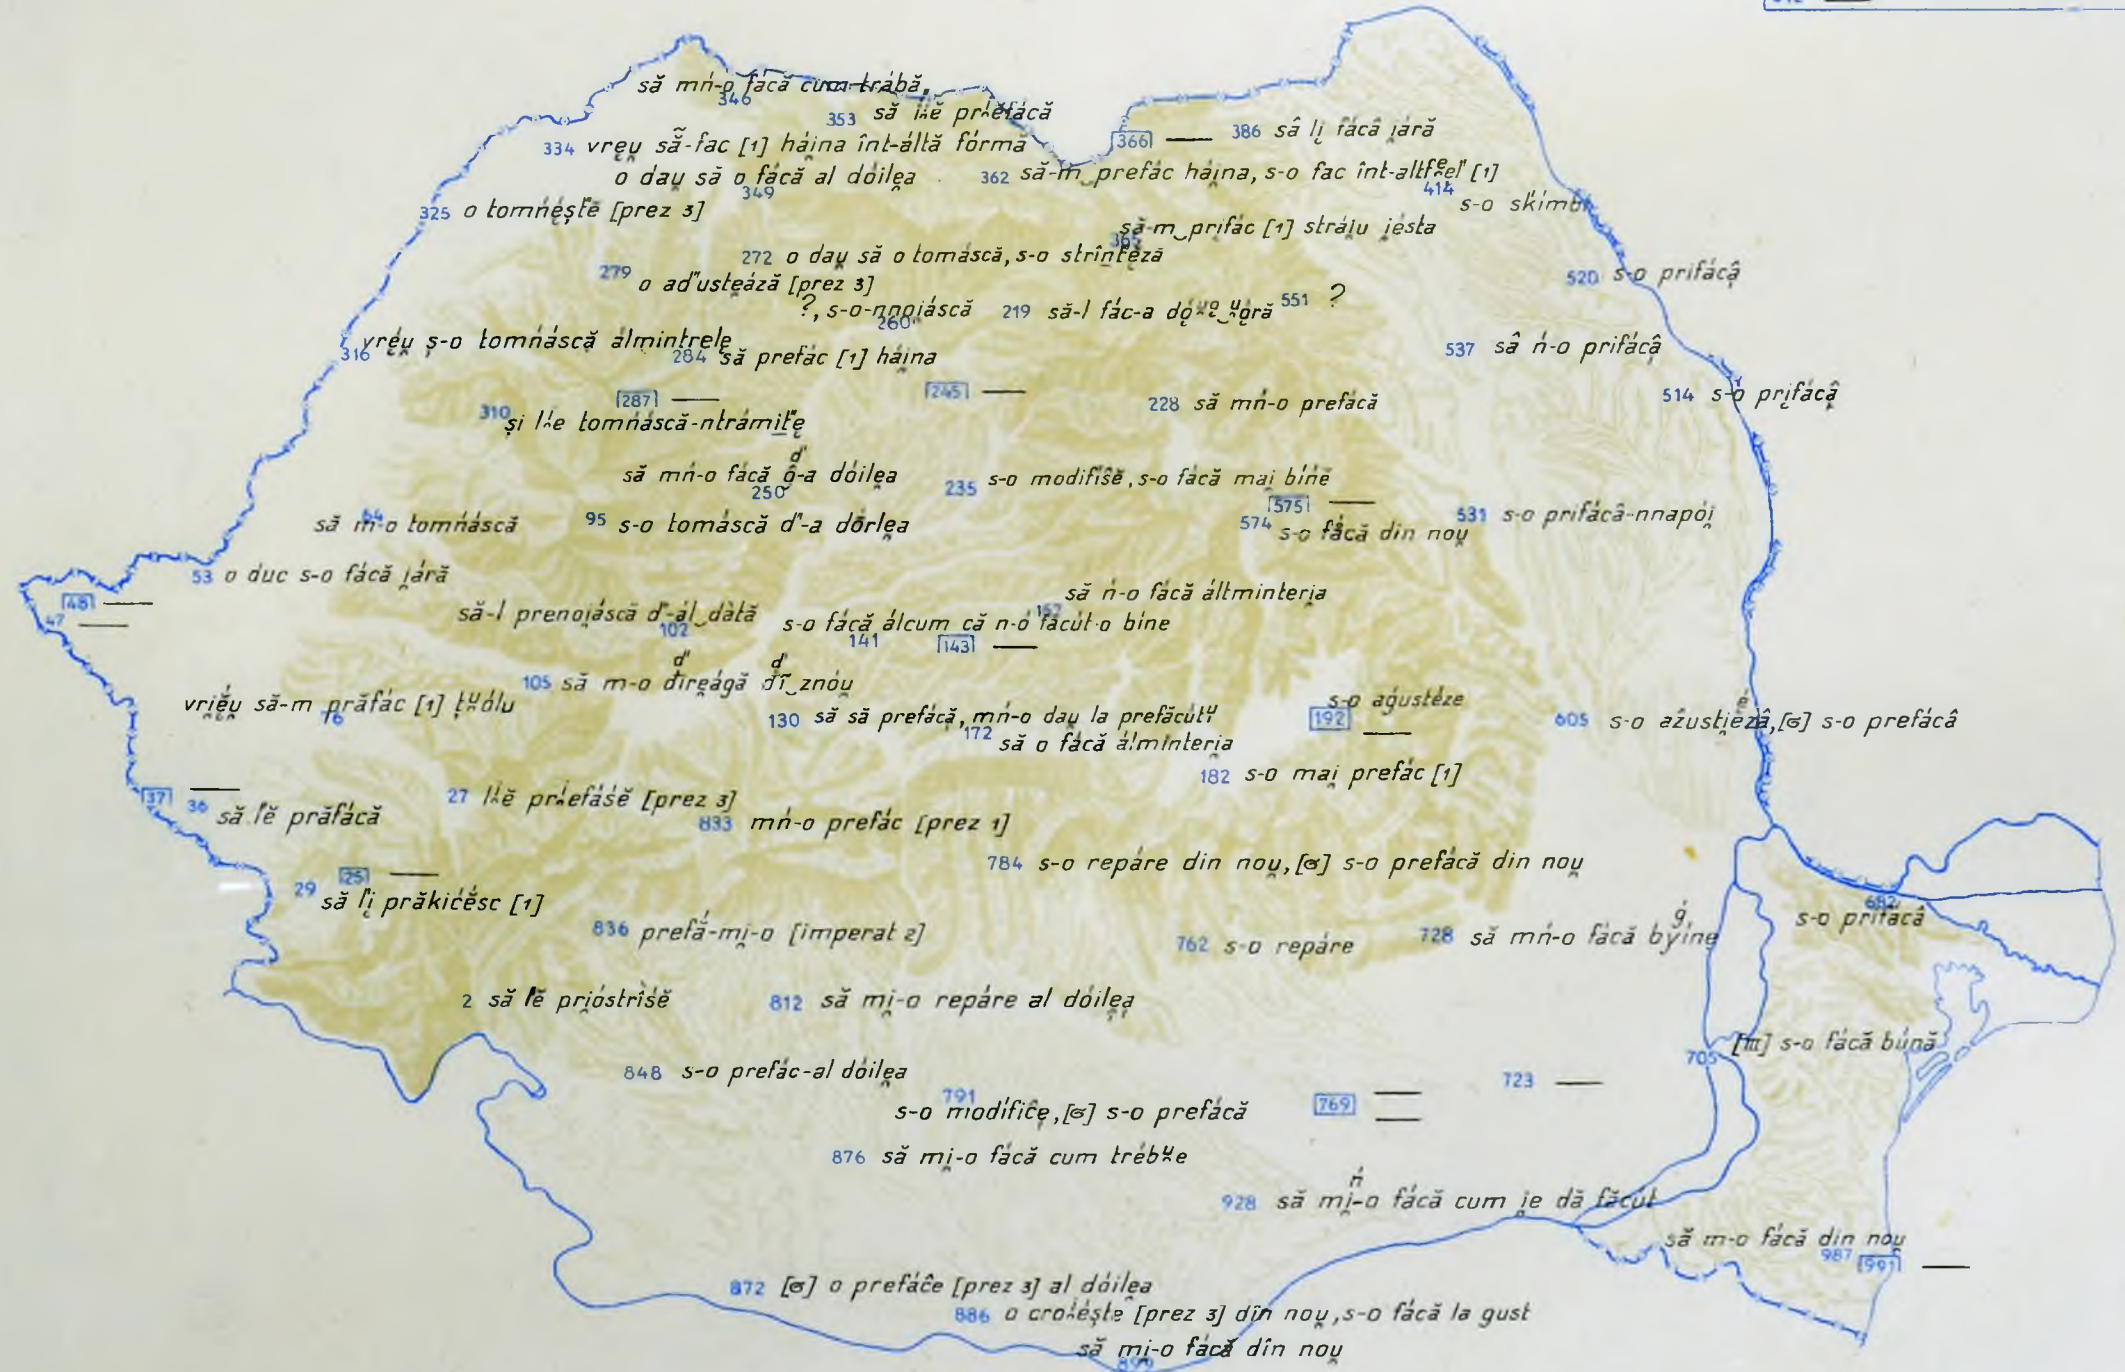 să mń-o fácă cum trábă,
346
353 să prefácă
334 vrĕu̯ să-fac [1] hái̯na înt-áltă fórmă
366 —
386 sâ li̯ fácâ i̯ará
o dau̯ să o fácă al dói̯lea
349
362 să-m‿prefác hái̯na, s-o fac înt-altfel [1]
414
s-o skimbi
325 o tomńéște [prez 3]
365
să-m‿prifác [1] strái̯u i̯ésta
272 o dau̯ să o tomáscă, s-o strîntĕză
279
o ad'usteáză [prez 3]
520 s-o prifácâ
?, s-o-nnoi̯áscă
260
219 să-l fác-a dóu̯ăoră
551 ?
316 vréu̯ ș-o tomńáscă álmintrele
284 să prefác [1] hái̯na
537 sâ ń-o prifácâ
514 s-o prifácâ
287 —
245 —
228 să mń-o prefácă
310 și l'e tomńáscă-ntrámite
să mń-o fácă d'ô-a dói̯lea
250
235 s-o modifiŝĕ, s-o fácă mai̯ bińĕ
575 —
64
să m-o tomńáscă
95 s-o tomáscă d'-a dórlea
574 s-o fácă din nou̯
531 s-o prifácâ-nnapói̯
53 o duc s-o fácă i̯ará
48 —
47 —
să ń-o fácă áltminteri̯a
157
să-l prenoi̯áscă d'-ál‿dátă
102
s-o fácă álcum că n-ó făcút-o bine
141
143 —
105 să m-o direágă dî‿znóu̯
vriĕu̯ să-m prăfác [1] țu̯ólu
76
130 să să prefácă, mń-o dau̯ la prefăcút
172
să o fácă álminteri̯a
s-o aǵustéze
192 —
605 s-o aẑustiezâ, [σ] s-o prefácâ
182 s-o mai̯ prefác [1]
37 —
36 să l'ĕ prăfácă
27 l'ĕ prefáśĕ [prez 3]
833 mń-o prefác [prez 1]
784 s-o repáre din nou̯, [σ] s-o prefácă din nou̯
25 —
29 să l'i̯ prăkićĕsc [1]
836 prefă-mi̯-o [imperat 2]
762 s-o repáre
728 să mń-o fácă byine
682
s-o prifácâ
2 să l'ĕ pri̯óstrîśĕ
812 să mi̯-o repáre al dói̯lea
705 [III] s-o fácă búnă
848 s-o prefác-al dói̯lea
723 —
791
s-o modífiĉe, [σ] s-o prefácă
769 —
—
876 să mi̯-o fácă cum trébu̯e
928 să mi̯-o fácă cum i̯e dă făcút
să m-o fácă din nou̯
987
991 —
872 [σ] o prefáĉe [prez 3] al dói̯lea
886 o croi̯éște [prez 3] dîn nou̯, s-o fácă la gust
să mi̯-o fácă din nou̯
899